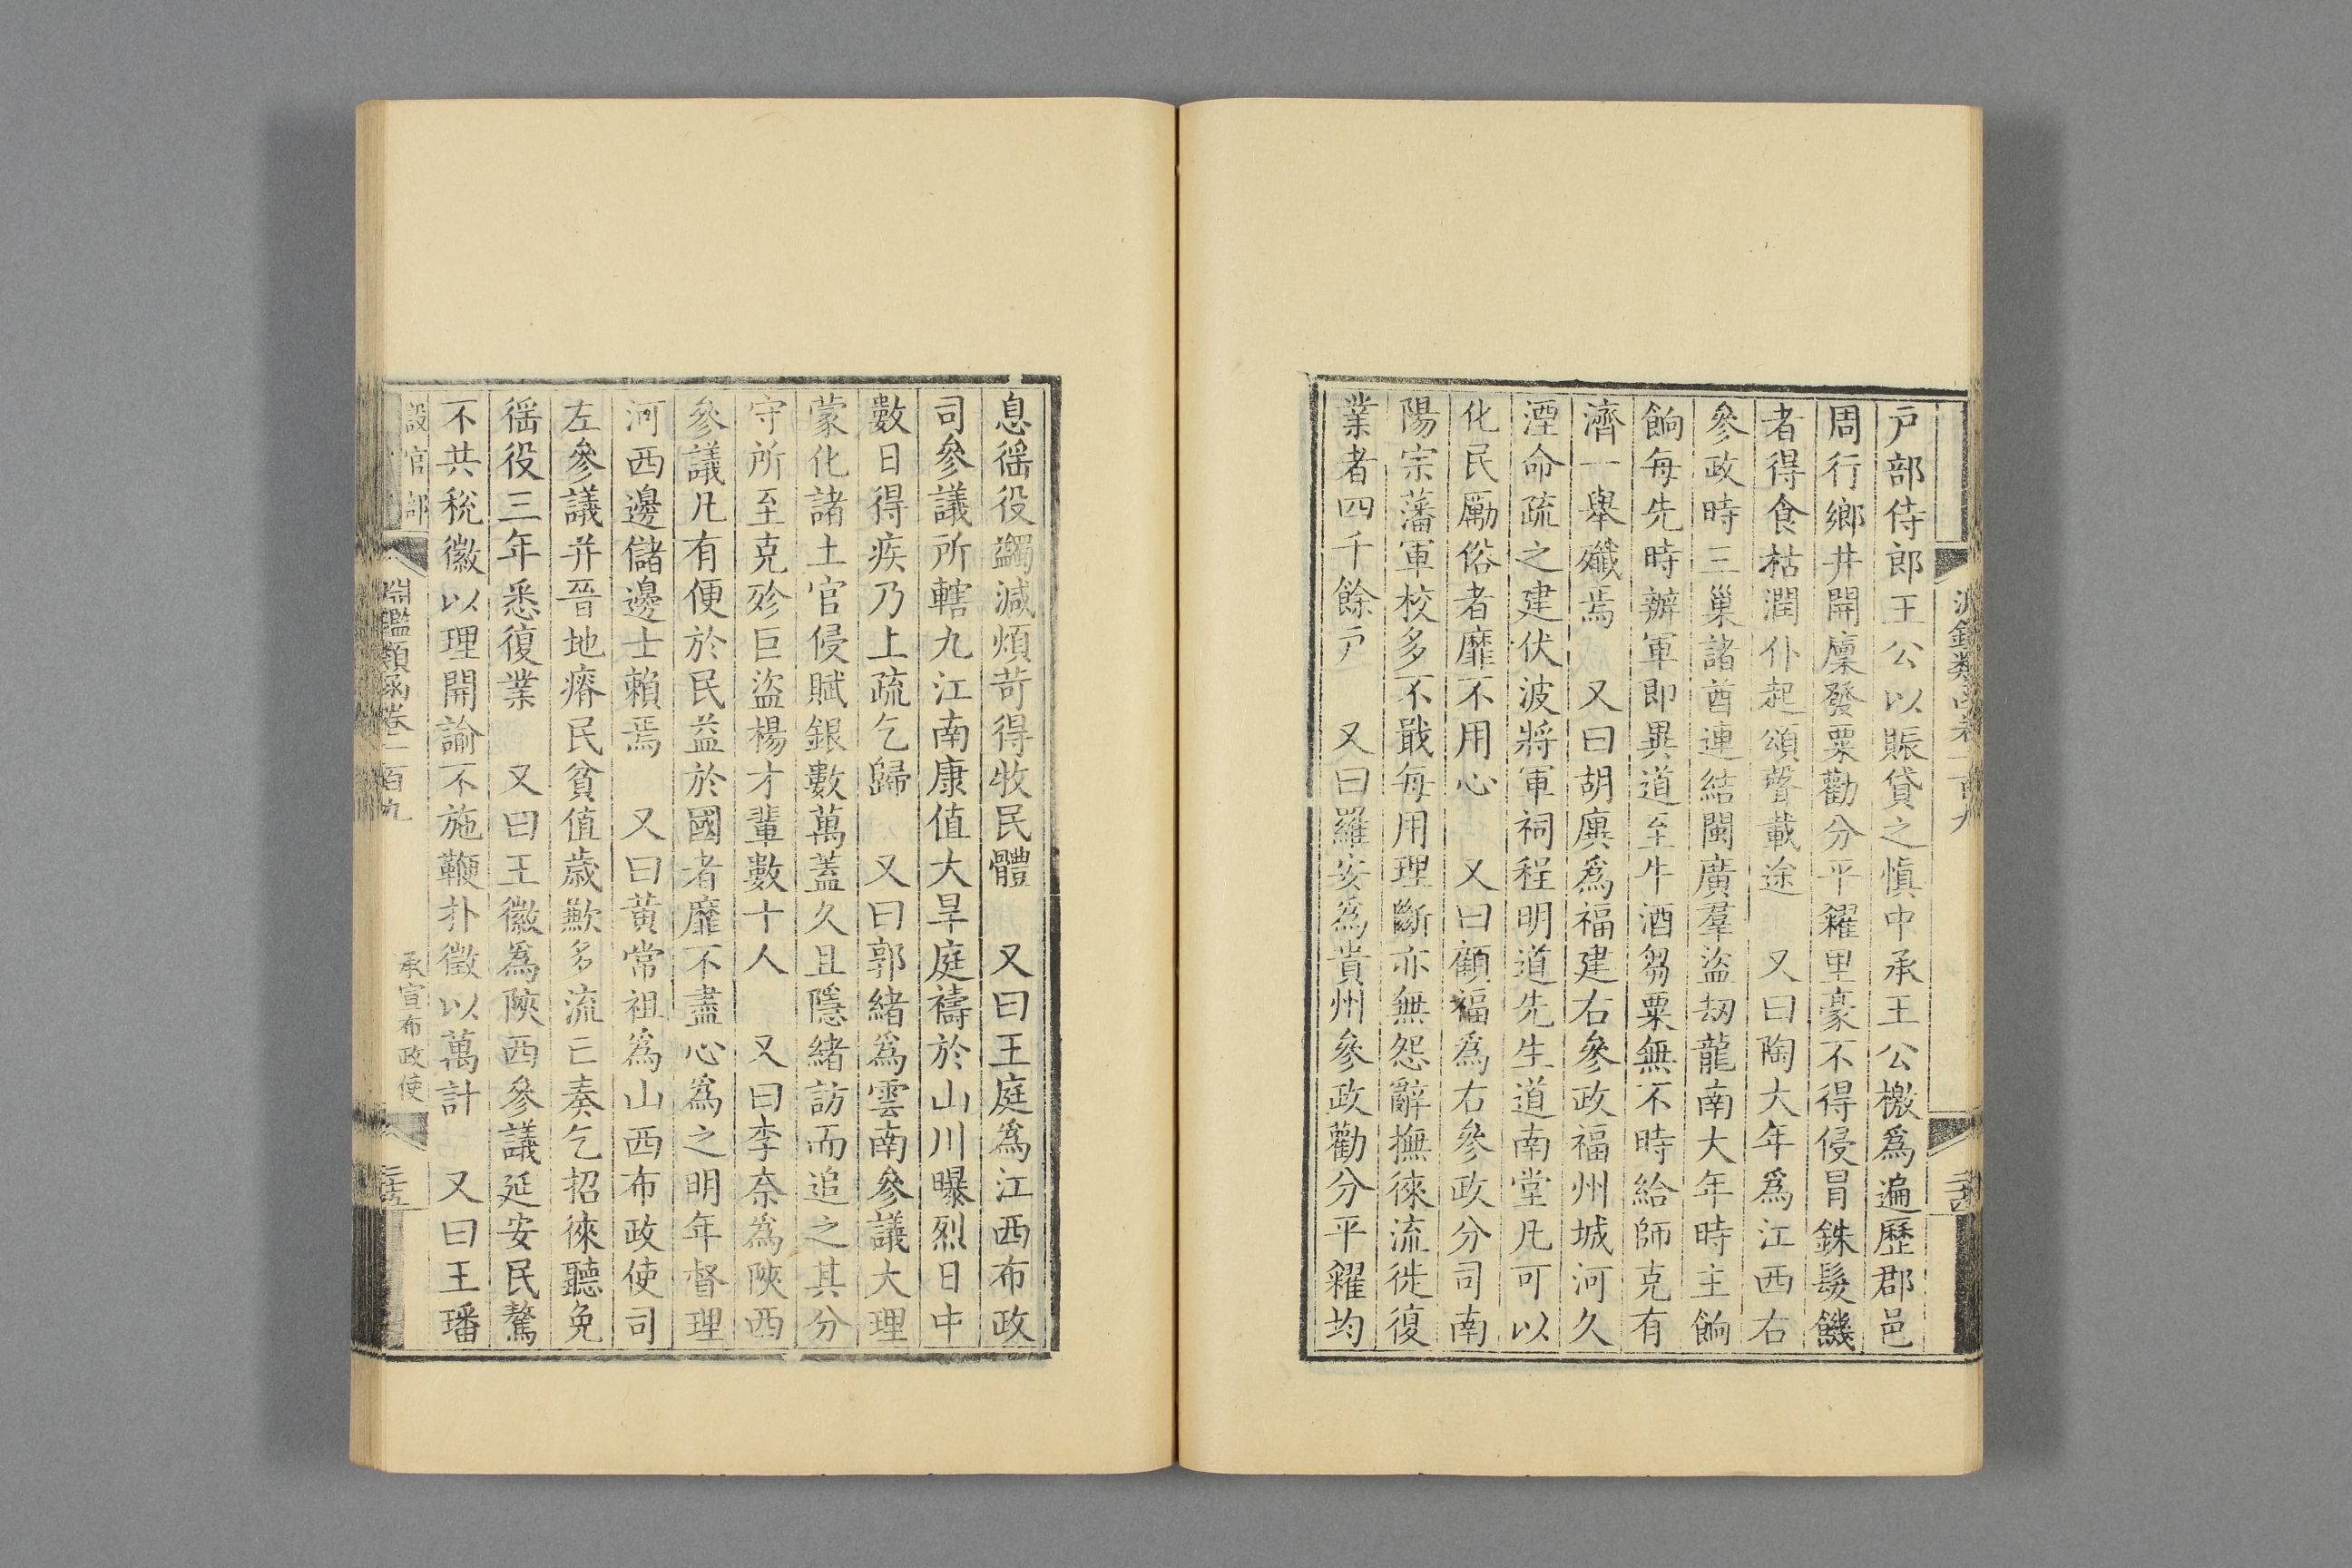 戶部侍郎王公以賑貸之愼中承王公檄爲遍歷郡邑
周行鄉井開廩發粟勸分平糴里豪不得侵冒銖髮饑
者得食枯潤仆起頌聲載途　又曰陶大年爲江西右
參政時三巢諸酋連結閩廣羣盜刼龍南大年時主餉
餉每先時辦軍即異道至牛酒芻粟無不時給師克有
濟一舉殲焉　又曰胡廙爲福建右參政福州城河久
湮命疏之建伏波將軍祠程明道先生道南堂凡可以
化民勵俗者靡不用心　又曰顧福爲右參政分司南
陽宗藩軍校多不戢每用理斷亦無怨辭撫徠流徙復
業者四千餘戶　又曰羅安爲貴州參政勸分平糴均
息徭役蠲減煩苛得牧民體　又曰王庭爲江西布政
司參議所轄九江南康值大旱庭禱於山川曝烈日中
數日得疾乃上疏乞歸　又曰郭緒爲雲南參議大理
蒙化諸土官侵賦銀數萬蓋久且隱緒訪而追之其分
守所至克殄巨盜楊才輩數十人　又曰李奈爲陝西
參議凡有便於民益於國者靡不盡心爲之明年督理
河西邊儲邊士賴焉　又曰黃常祖爲山西布政使司
左參議并晉地瘠民貧值歲歉多流亡奏乞招徠聽免
徭役三年悉復業　又曰王徽爲陝西參議延安民驁
不共稅徽以理開諭不施鞭扑徵以萬計　又曰王璠
設官部　淵鑑類函卷一百九　承宣布政使　二十五